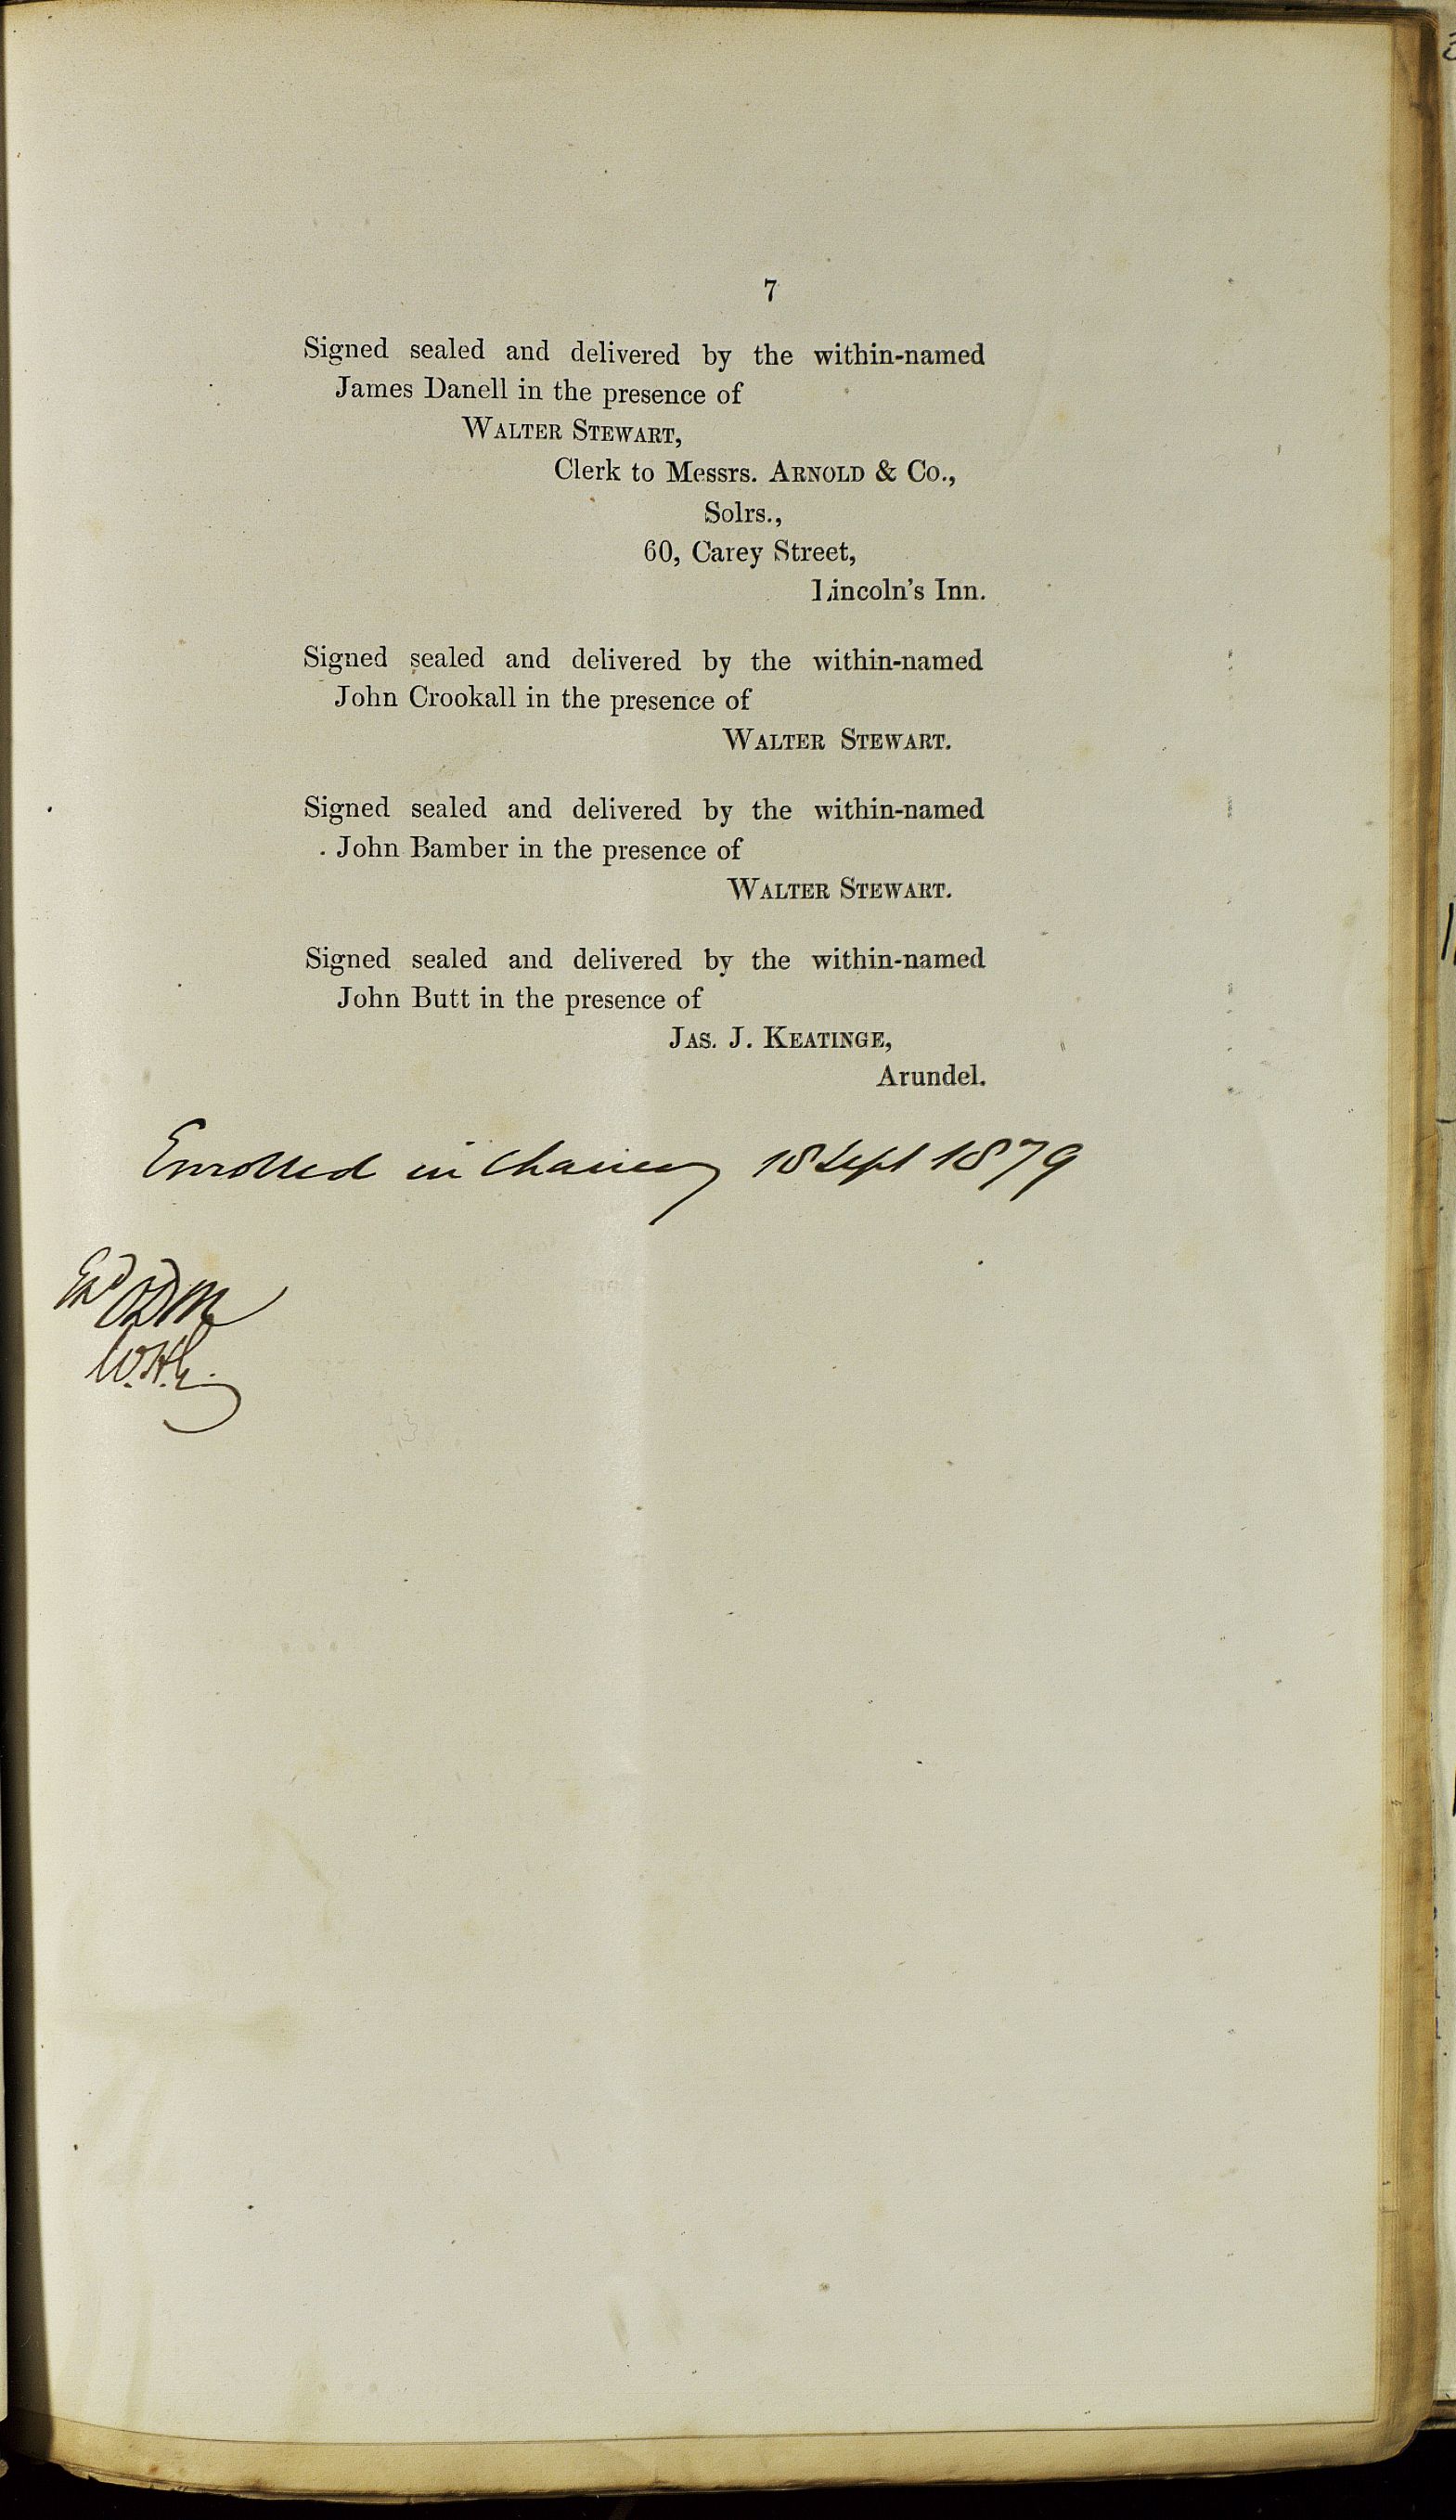 7
Signed sealed and delivered by the within-named
James Danell in the presence of
WALTER STEWART,
Clerk to Messrs. ARNOLD & Co.,
Solrs.,
60, Carey Street,
Lincoln's Inn.
Signed sealed and delivered by the within-named
John Crookall in the presence of
WALTER STEWART.
Signed sealed and delivered by the within-named
John Bamber in the presence of
WALTER STEWART.
Signed sealed and delivered by the within-named
John Butt in the presence of
JAS. J. KEATINGE,
Arundel.
Enrolled in Chancery 18 Sept 1879